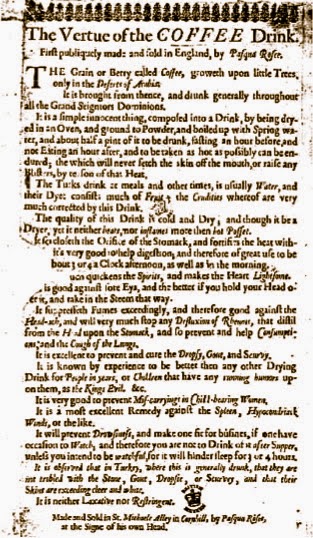 The Vertue of the COFFEE Drink.
First publiquely made and sold in England, by Pasqua Rosee.
THE Grain or Berry called Coffee, groweth upon little Trees,
only in the Deserts of Arabia.
It is brought from thence, and drunk generally throughout
all the Grand Seigniors Dominions.
It is a simple innocent thing, composed into a Drink, by being dry-
ed in an Oven, and ground to Powder, and boiled up with Spring wa-
ter, and about half a pint of it to be drunk, fasting an hour before, and
not Eating an hour after, and to be taken as hot as possibly can be en-
dured; the which will never fetch the skin off the mouth, or raise any
Blisters, by reason of that Heat.
The Turks drink at meals and other times, is usually Water, and
their Dyet consists much of Fruit; the Crudities whereof are very
much corrected by this Drink.
The quality of this Drink is cold and Dry; and though it be a
Dryer, yet it neither heats, nor inflames more then hot Posset.
It so closeth the Orifice of the Stomack, and fortifies the heat with-
it's very good to help digestion, and therefore of great use to be
bout 3 or 4 a Clock afternoon, as well as in the morning.
quickens the Spirits, and makes the Heart Lightsome.
is good against sore Eys, and the better if you hold your Head o-
er it, and take in the Steem that way.
It suppresseth Fumes exceedingly, and therefore good against the
Head-ach, and will very much stop any Defluxion of Rheums, that distil
from the Head upon the Stomack, and so prevent and help Consumpti-
ons; and the Cough of the Lungs.
It is excellent to prevent and cure the Dropsy, Gout, and Scurvy.
It is known by experience to be better then any other Drying
Drink for People in years, or Children that have any running humors up-
on them, as the Kings Evil. &c.
It is very good to prevent Mis-carryings in Child-bearing Women.
It is a most excellent Remedy against the Spleen, Hypocondriack
Winds, or the like.
It will prevent Drowsiness, and make one fit for busines, if one have
occasion to Watch; and therefore you are not to Drink of it after Supper,
unless you intend to be watchful, for it will hinder sleep for 3 or 4 hours.
It is observed that in Turkey, where this is generally drunk, that they are
not trobled with the Stone, Gout, Dropsie, or Scurvey, and that their
Skins are exceeding cleer and white.
It is neither Laxative nor Restringent.
Made and Sold in St. Michaels Alley in Cornhill, by Pasqua Rosee,
at the Signe of his own Head.